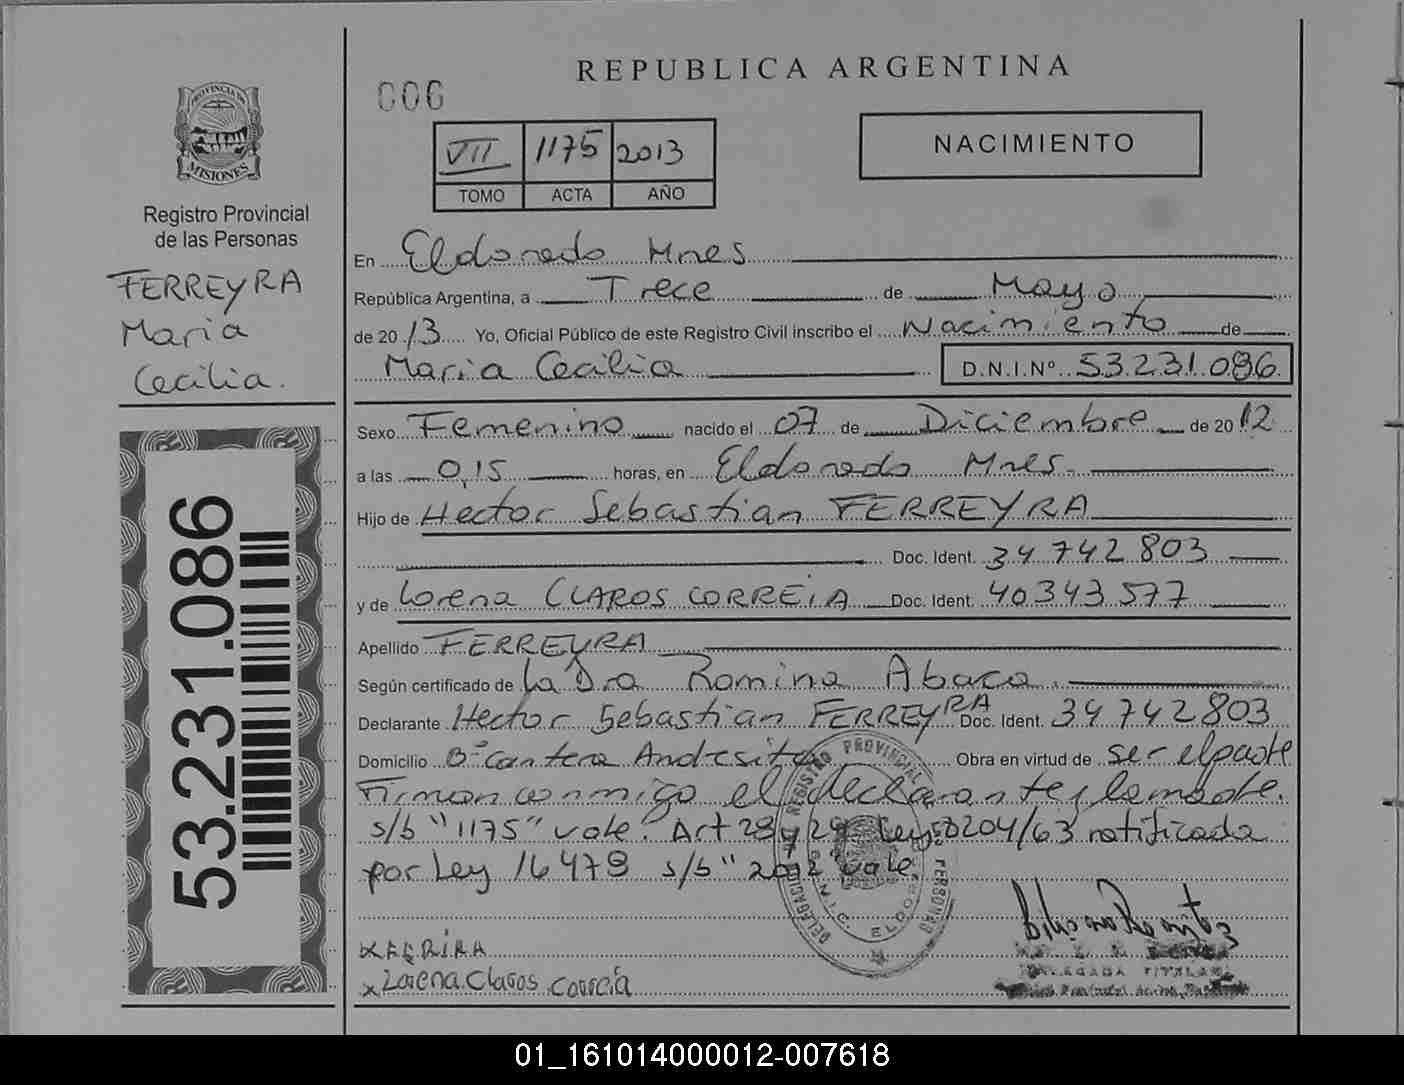 REPUBLICA ARGENTINA
006
NACIMIENTO
VII 1175 2013
TOMO ACTA AÑO
PROVINCIA DE
MISIONES
Registro Provincial
de las Personas
FERREYRA
Maria
Cecilia.
53.231.086
En Eldorado Mnes
República Argentina, a Trece de Mayo
de 2013 Yo, Oficial Público de este Registro Civil inscribo el Nacimiento de
Maria Cecilia D.N.I.Nº 53.231.086
Sexo Femenino nacido el 07 de Diciembre de 2012
a las 0,15 horas, en Eldorado Mnes.
Hijo de Hector Sebastian FERREYRA
Doc. Ident. 34 742 803
y de Lorena CLAROS CORREIA Doc. Ident. 40343577
Apellido FERREYRA
Según certificado de La Dra Romina Abaca
Declarante Hector Sebastian FERREYRA Doc. Ident. 34 742803
Domicilio Bº Cantera Andesita Obra en virtud de ser el padre
Firman conmigo el declarante y la madre.
s/b "1175" vale. Art 28 y 29 Ley 8204/63 ratificada
por Ley 16478 s/b "2012" vale.
x Lorena Claros Correia
DELEGADA TITULAR
REGISTRO PROVINCIAL PERSONAS
01_161014000012-007618